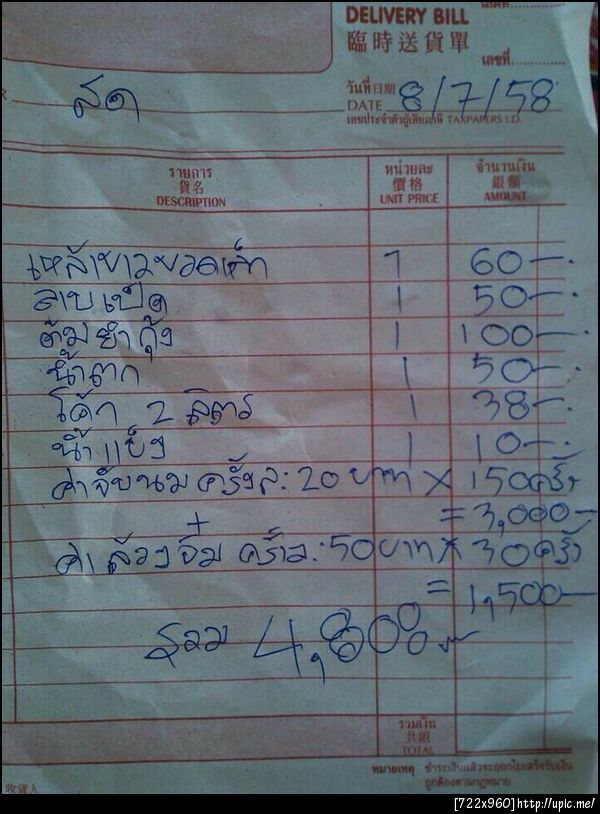 DELIVERY BILL
臨時送貨單
เลขที่
วันที่ 日期
DATE 8/7/58
สด
เลขประจำตัวผู้เสียภาษี TAXPAPERS I.D.
รายการ หน่วยละ จำนวนเงิน
貨名 價格 銀額
DESCRIPTION UNIT PRICE AMOUNT
เหล้าขาวยวดเห้า 1 60-.
ลาบเป็ด 1 50-.
ต้มยำกุ้ง 1 100-.
น้ำตก 1 50-.
โค้ก 2 ลิตร 1 38-.
น้ำแข็ง 1 10-.
ค่าจับนม ครั้งล: 20 บาท X 150 ครั้ง
= 3,000-
+
ค่าล้วงจิ๋ม ครั้งล: 50 บาท X 30 ครั้ง
= 1,500-
รวม 4,800
รวมเงิน
共銀
TOTAL
หมายเหตุ ชำระเงินแล้วจะออกใบเสร็จรับเงิน
ถูกต้องตามกฎหมาย
收貨人
[722x960] http://upic.me/